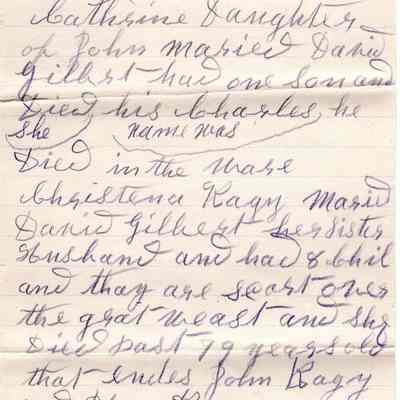 Cathrine Daughter
of John maried David
Gilbert had one son and
Died his Charles, he
she name was
Died in the ware
Christena Kagy Maried
David Gilbert her sister
Husband and had 8 Chil
and thay are scort over
the grat weast and she
Died past 79 years old
that endes John Kagy